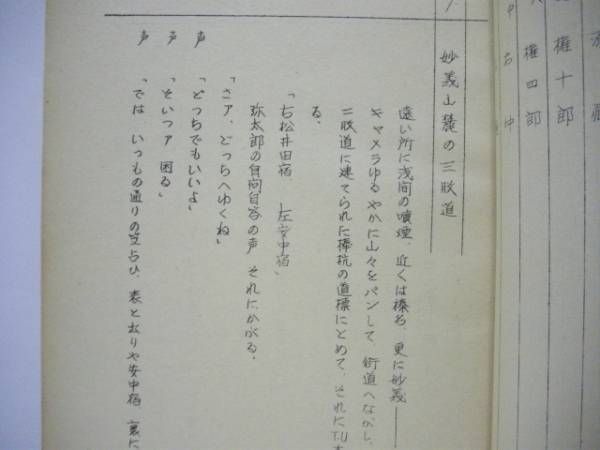 権十郎
権四郎
妙義山麓の三叉道
遠い所に浅間の噴煙、近くは榛名、更に妙義——
キャメラゆるやかに山々をパンして、街道へながし、
三叉道に建てられた棒杭の道標にとめて、それにT.U
る。
「右松井田宿　左安中宿」
弥太郎の自問自答の声、それにかぶる。
「さア、どっちへゆくね」
声「どっちでもいいよ」
声「そいつア困る」
声「では、いつもの通りの占ひ、表と出りや安中宿、裏に